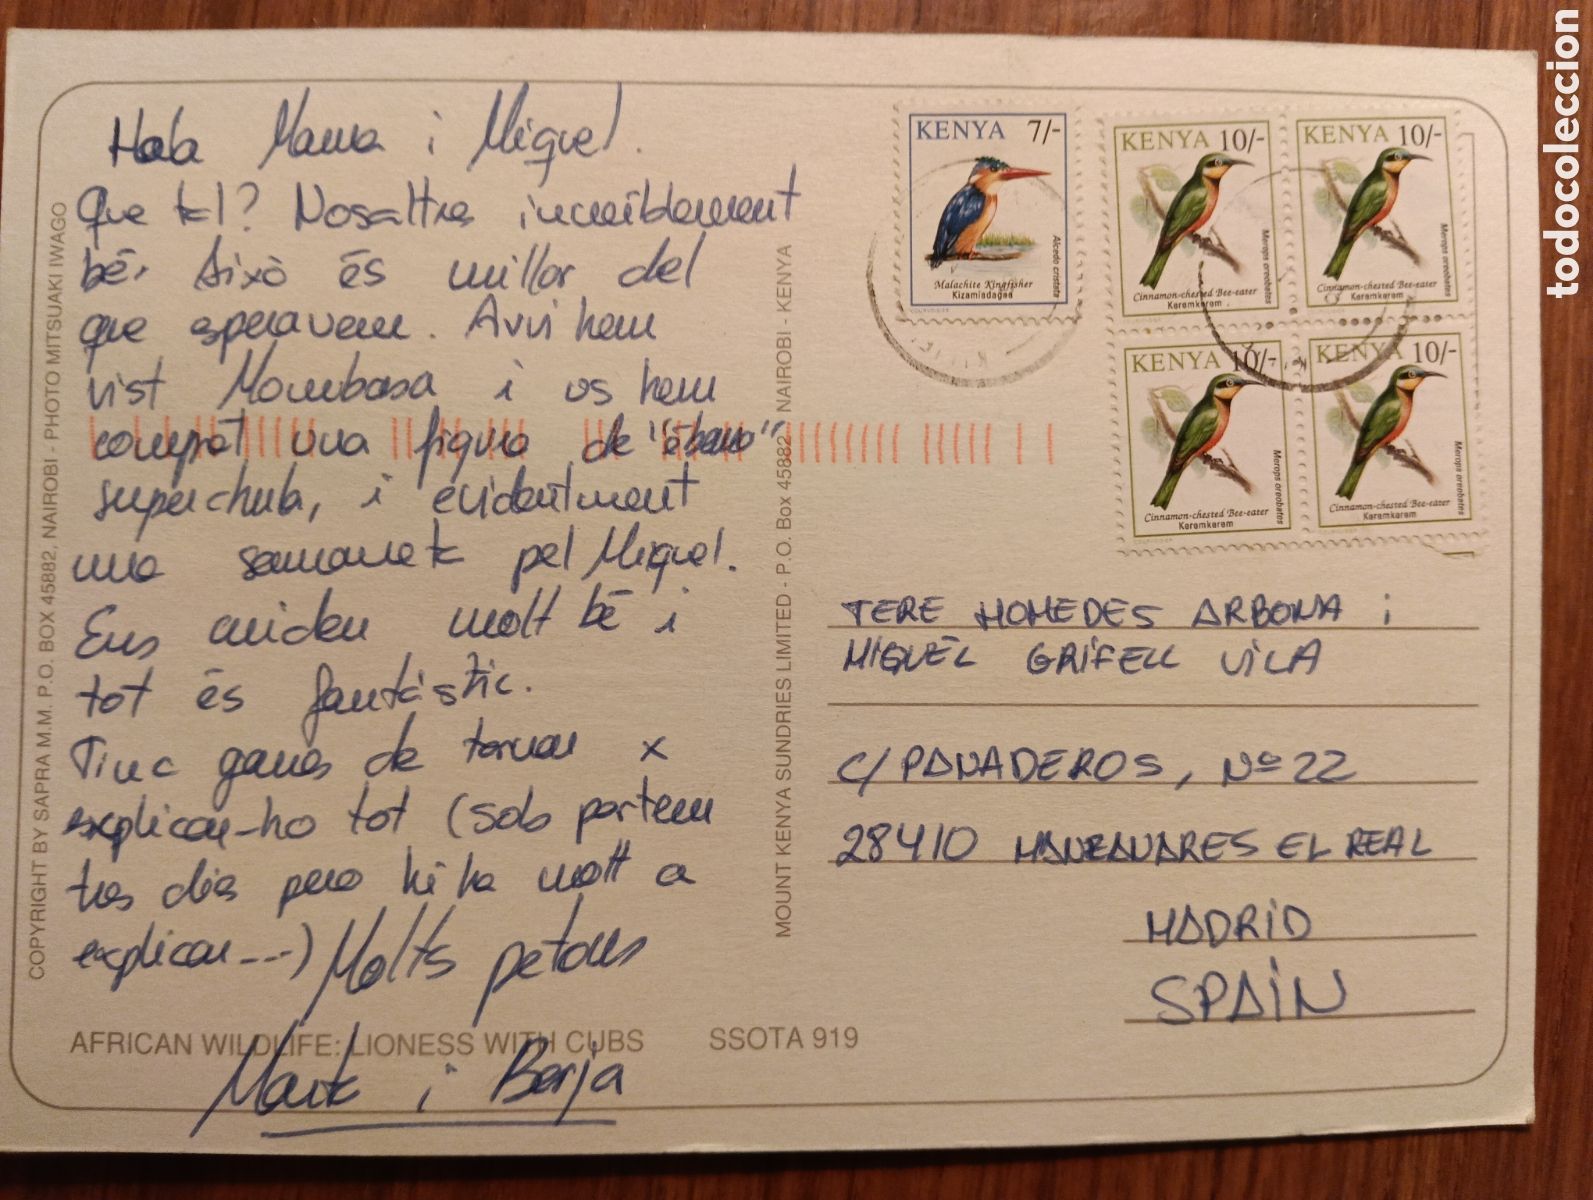 Hola Mama i Miguel.
Que tal? Nosaltres increiblement
bé. Això és millor del
que esperavem. Avui hem
vist Mombasa i us hem
comprat una figura de "ébano"
superchula, i evidentment
una samarreta pel Miguel.
Ens cuiden molt bé i
tot és fantàstic.
Tinc ganes de tornar x
explicar-ho tot (sols portem
tres dies pero hi ha molt a
explicar---) Molts petons
Marta i Borja
AFRICAN WILDLIFE: LIONESS WITH CUBS SSOTA 919
COPYRIGHT BY SAPRA M.M. P.O. BOX 45882, NAIROBI - PHOTO MITSUAKI IWAGO
MOUNT KENYA SUNDRIES LIMITED - P.O. Box 45882 NAIROBI - KENYA
KENYA 7/-
Alcedo cristata
Malachite Kingfisher
Kizamiadagaa
KENYA 10/-
Merops oreobates
Cinnamon-chested Bee-eater
Keremkerem
KENYA 10/-
Merops oreobates
Cinnamon-chested Bee-eater
Keremkerem
KENYA 10/-
Merops oreobates
Cinnamon-chested Bee-eater
Keremkerem
KENYA 10/-
Merops oreobates
Cinnamon-chested Bee-eater
Keremkerem
TERE HOMEDES ARBONA i
MIGUEL GRIFELL VILA
C/ PANADEROS, Nº 22
28410 MANZANARES EL REAL
MADRID
SPAIN
todocoleccion